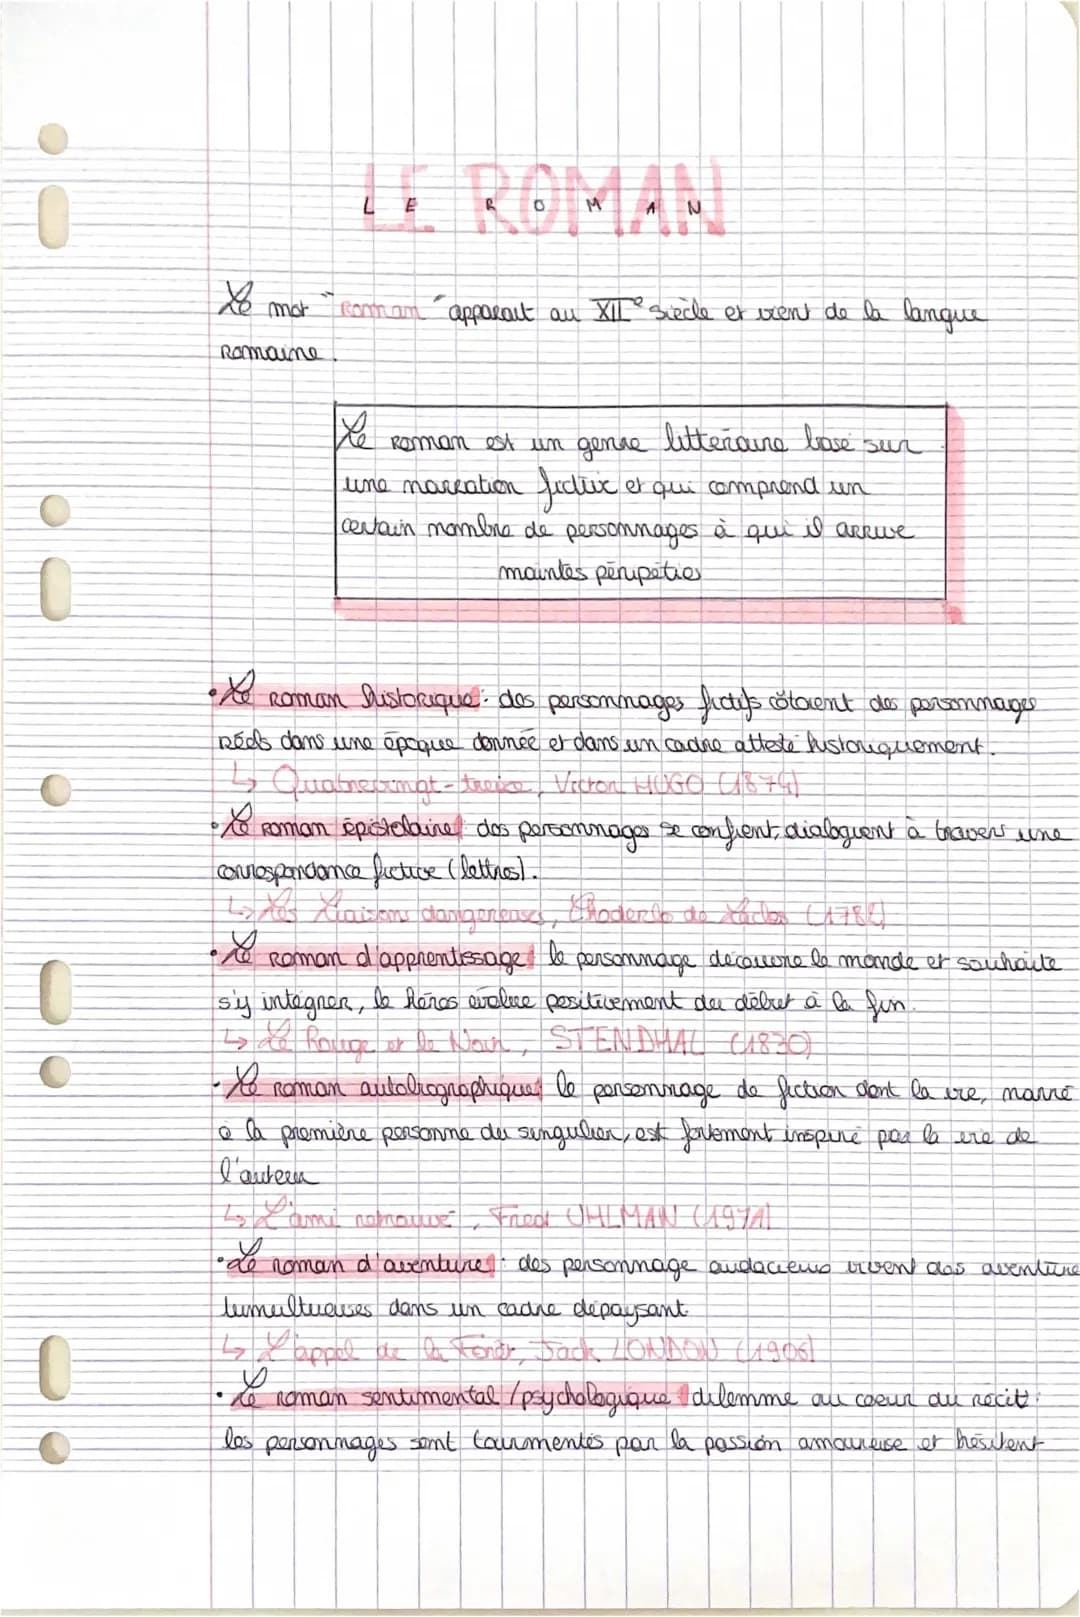 LE ROMAN
Le mot "Roman" apparait au XIIe siècle et vient de la langue
Romaine.
Le Roman est un genre littéraire basé sur
une narration fictive et qui comprend un
certain nombre de personnages à qui il arrive
maintes péripéties
• Le roman historique : des personnages fictifs côtoient des personnages
Réels dans une époque donnée et dans un cadre attesté historiquement.
↳ Quatrevingt-treize, Victor HUGO (1874)
• Le roman épistolaire : des personnages se confient, dialoguent à travers une
correspondance fictive (lettres).
↳ Les Liaisons dangereuses, Choderlo de Laclos (1782)
• Le Roman d'apprentissage : le personnage découvre le monde et souhaite
s'y intégner, le héros évolue positivement du début à la fin.
↳ Le Rouge et le Noir, STENDHAL (1830)
• Le roman autobiographique : le personnage de fiction dont la vie, narré
à la première personne du singulier, est fortement inspiré par la vie de
l'auteur
↳ L'ami retrouvé, Fred UHLMAN (1971)
• Le roman d'aventure : des personnage audacieux vivent des aventure
tumultueuses dans un cadre dépaysant
↳ L'appel de la Forêt, Jack LONDON (1906)
• Le roman sentimental / psychologique : dilemme au coeur du récit :
les personnages sont tourmentés par la passion amoureuse et hésitent